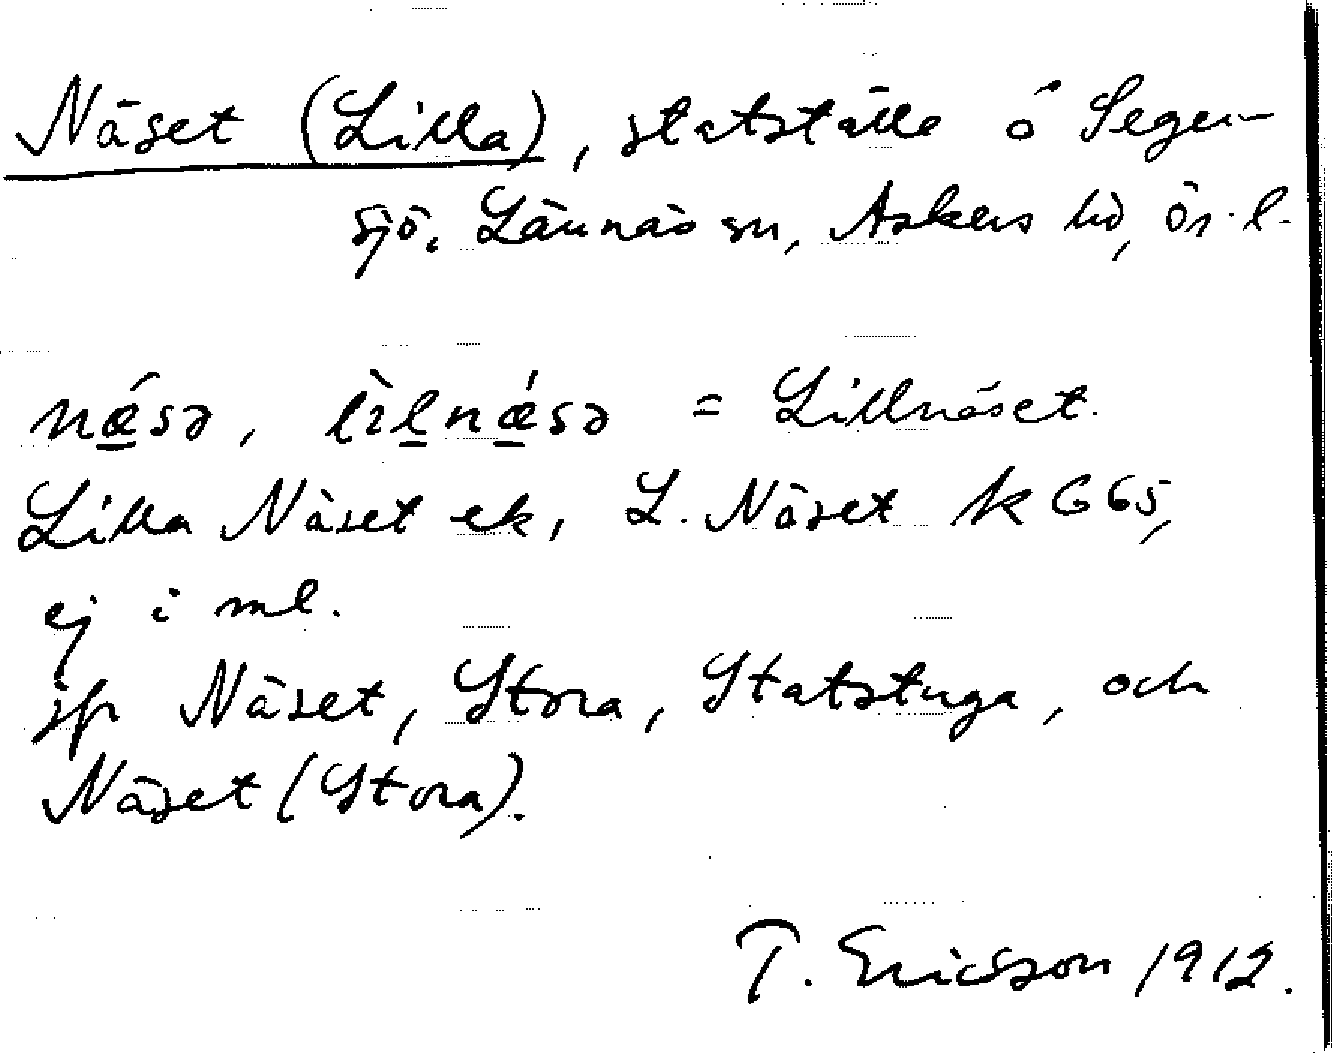 Näset (Lilla), statställe å Seger-
sjö. Lännäs sn, Askers hd, ör. l.
nǽ̲sə, lìl̲nǽ̲sə = Lillnäset.
Lilla Näset ek, L. Näset k G65,
ej i ml.
jfr Näset, Stora, Statstuga, och
Näset (Stora).
T. Ericsson 1912.